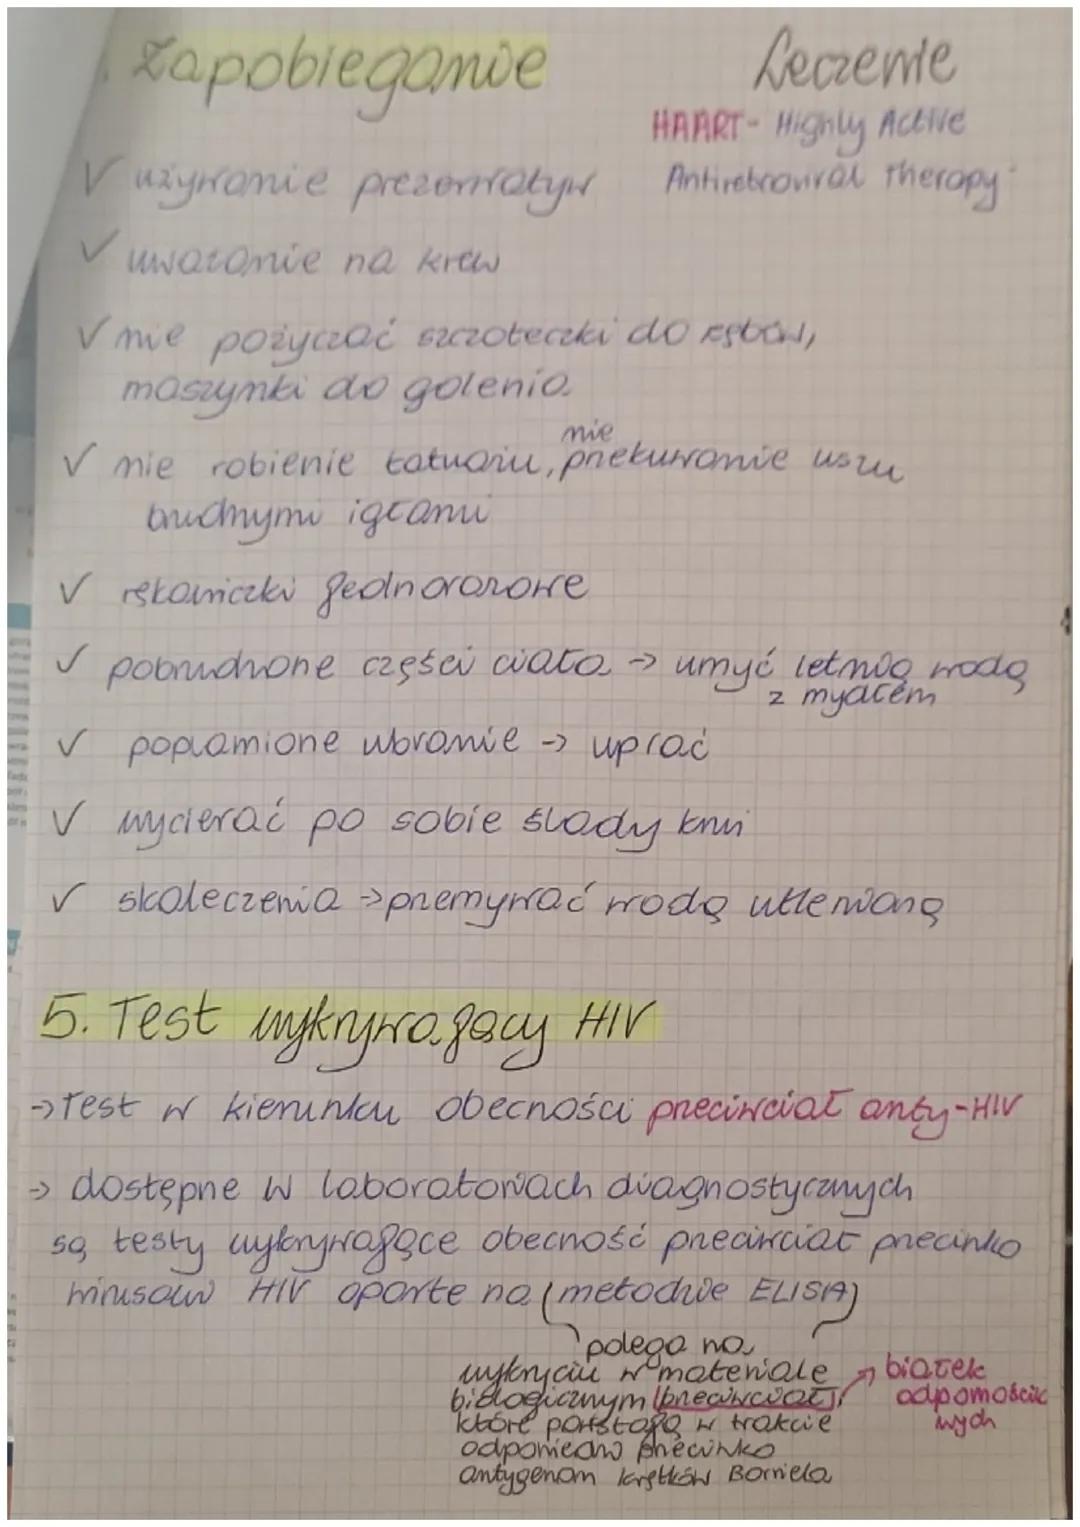 Zapobieganie
Leczenie
HAART - Highly Active
Antiretroviral therapy
✓ używanie prezerwatyw
✓ uważanie na krew
✓ nie pożyczać szczoteczki do zębów,
maszynki do golenia
nie
✓ nie robienie tatuażu, przekuwanie uszu
brudnymi igłami
✓ rękawiczki jednorazowe
✓ pobrudzone części ciała -> umyć letnią wodą
z mydłem
✓ poplamione ubranie -> uprać
✓ wycierać po sobie ślady krwi
✓ skaleczenia -> przemywać wodą utlenioną
5. Test wykrywający HIV
-> Test w kierunku obecności przeciwciał anty-HIV
-> dostępne w laboratoriach diagnostycznych
są testy wykrywające obecność przeciwciał przeciwko
wirusowi HIV oparte na (metodzie ELISA)
polega na
wykryciu w materiale
biologicznym (przeciwciał),
białek
odpornościo
wych
które powstają w trakcie
odpowiedzi przeciwko
antygenom krętków Borriela